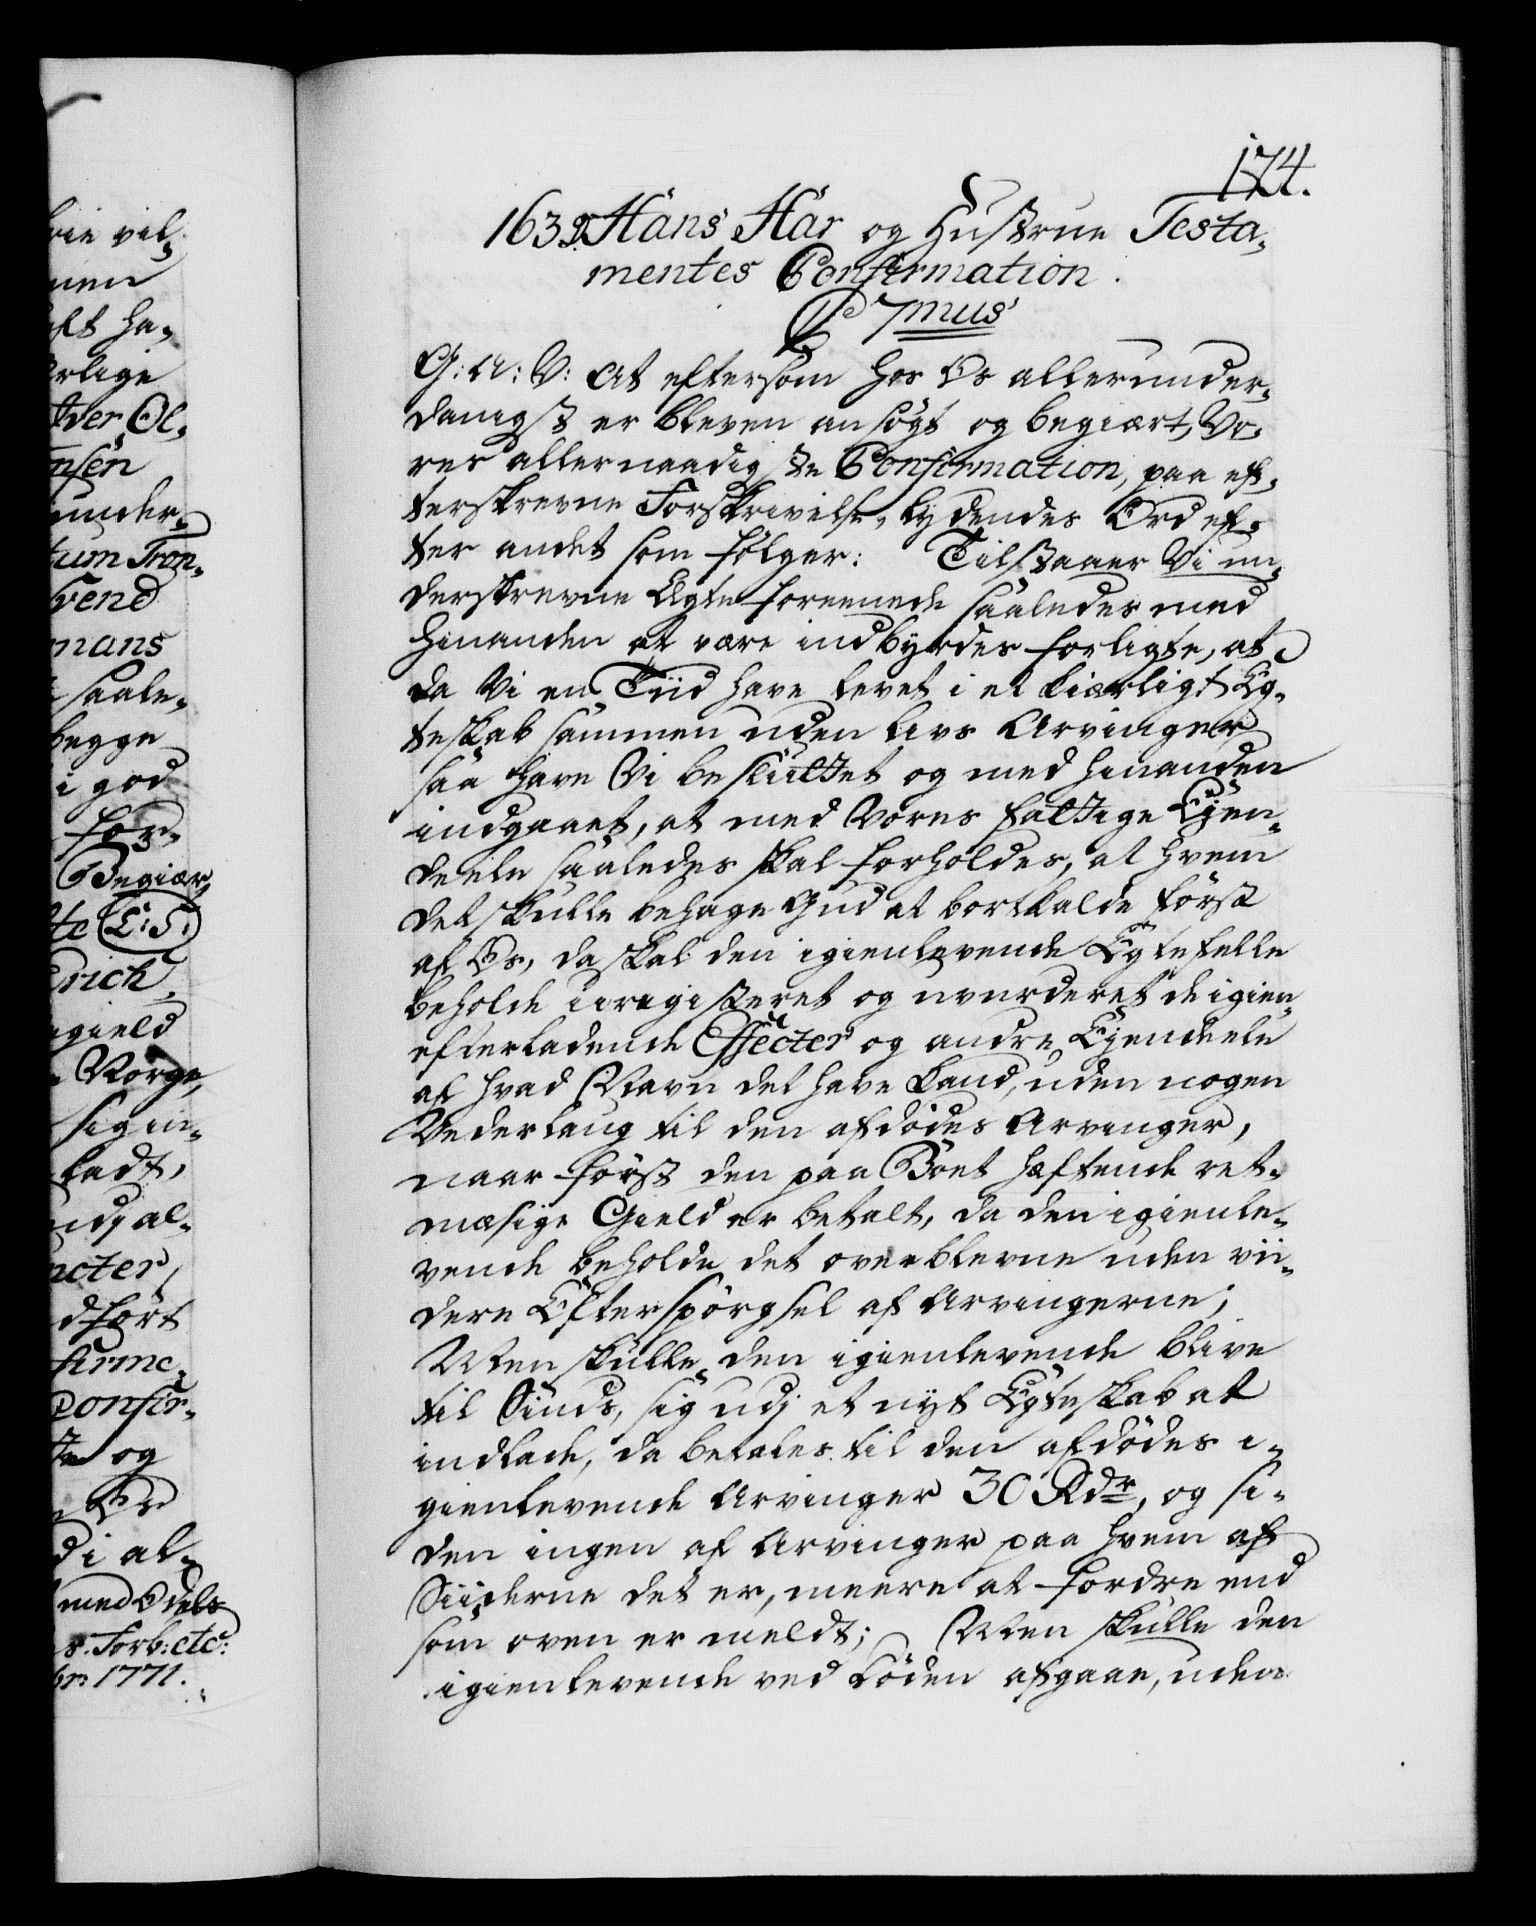 174.
1639. Hans Har og Hustrue Testa-
mentes Confirmation.
C 7mus
G: A: V: At eftersom hos Os allerunder-
danigst er bleven ansøgt og begiært, Vo-
res allernaadigste Confirmation, paa ef-
terskrevne Forskrivelse, lydendes Ord ef-
ter andet som følger: Tilstaaer Vi un-
derskrevne Ægte foreenede saaledes med
hinanden at være indbyrdes forligte, at
da Vi en Tiid have levet i et kiærligt Eg-
teskab sammen uden Livs Arvinger
saa have Vi besluttet og med hinanden
indgaaet, at med Vores fattige Ejen-
deele saaledes skal forholdes, at hvem
det skulle behage Gud at bortkalde først
af Os, da skal den igienlevende Egtefelle
beholde uregisteret og uvurderet de igien-
efterladende Effecter og andre Ejendeele
af hvad Navn det have kand, uden nogen
Vederlaug til den afdødes Arvinger,
naar først den paa Boet hæftende ret-
mæsige Gield er betalt, da den igienle-
vende beholde det overblevne uden vii-
dere Efterspørgsel af Arvingerne;
Men skulle den igienlevende blive
til Sinds, sig udj et nyt Egteskab at
indlade, da betales til den afdødes i-
gienlevende Arvinger 30 Rdr, og si-
den ingen af Arvinger paa hvem af
Siiderne det er, meere at fordre end
som oven er meldt; Men skulle den
igienlevende ved Døden afgaae, uden
rie vil-
men
aft ha-
rlige
ter Ol-
nsen
under-
tum Tron-
vend
mans
saale-
begge
i god
for-
Begiær,
te (L: S:)
Erich
gield
Norge,
sigin-
ladt,
udj al-
ncter,
dført
firme-
Confir-
te og
Os
d i al-
med Odels
s. Forb: etc:
br: 1771.